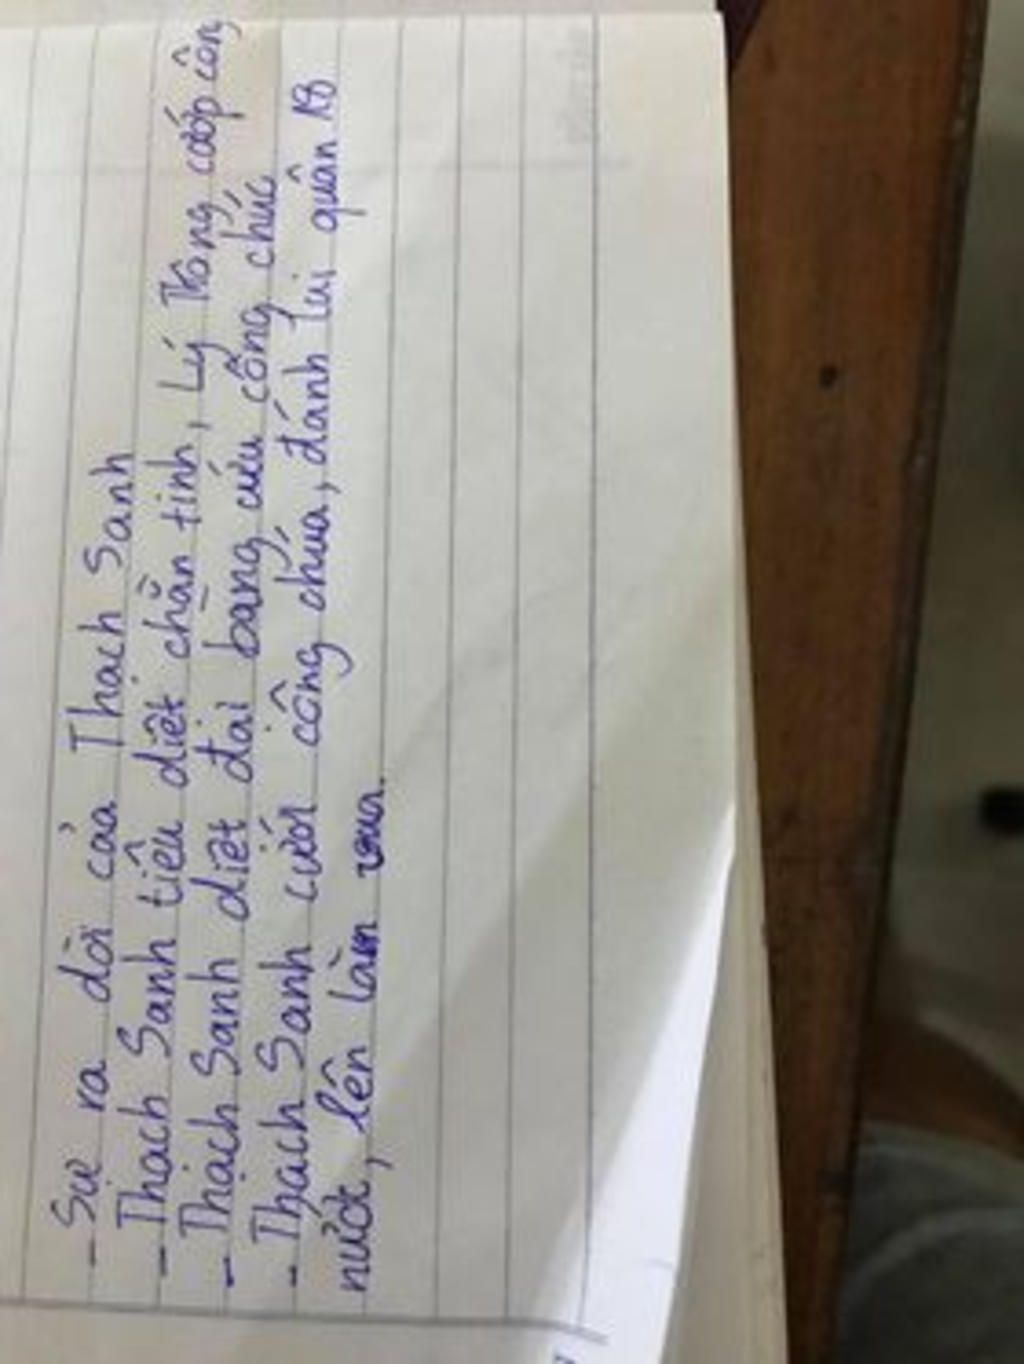 - Sự ra đời của Thạch Sanh
- Thạch Sanh tiêu diệt chằn tinh, Lý Thông cướp công
- Thạch Sanh diệt đại bàng cứu công chúa
- Thạch Sanh cưới công chúa, đánh lui quân 18
nước, lên làm vua.